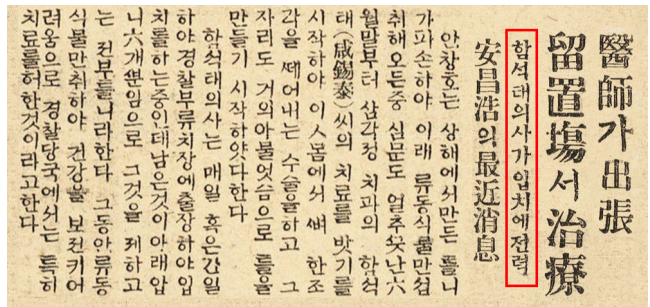 醫師가出張
留置場서治療
함석태의사가입치에전력
安昌浩의最近消息
안창호는 상해에서만든 틀니
가파손하야 이래 류동식물만섭
취해오든중 심문도 얼추끗난六
월말부터 삼각정 치과의 함석
태(咸錫泰)씨의 치료를 밧기를
시작하야 이人몸에서 뼈 한조
각을 쩨어내는 수술을하고 그
자리도 거의아물엇슴으로 틀을
만들기 시작하얏다한다
함석태의사는 매일 혹은간일
하야 경찰부류치장에출장하야입
치를하는중인데남은것이아래압
니六개뿐임으로 그것을 페하고
는 전부틀니라한다 그동안류동
식물만취하야 건강을 보전키어
려움으로 경찰당국에서는 특히
치료를허한것이라고한다